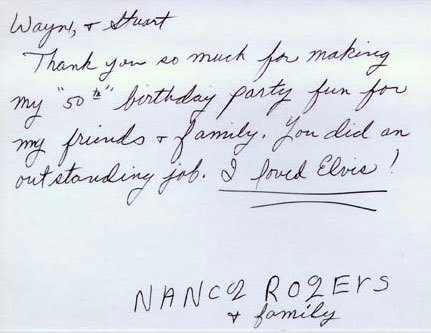 Wayne, + Stuart
Thank you so much for making
my "50th" birthday party fun for
my friends + family. You did an
outstanding job. I loved Elvis!
NANCY ROGERS
+ family